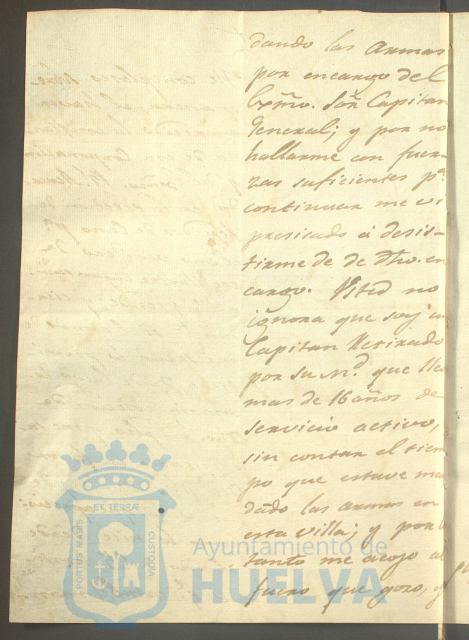 dando las Armas
por encargo del
Exmo. Sor. Capitan
General; y por no
hallarme con fuer-
zas suficientes pa.
continuar me vi
presisado á desis-
tirme de de dho. en
cargo. Usted no
ignora que soy un
Capitan Retirado
por su M.d que lle
mas de 16 años de
servicio activo,
sin contar el tiem
po que estuve man
dado las armas en
esta villa; y por lo
tanto me acojo al
fuero que gozo, y
ET TERRÆ
PORTUS MARIS
CUSTODIA
Ayuntamiento de
HUELVA